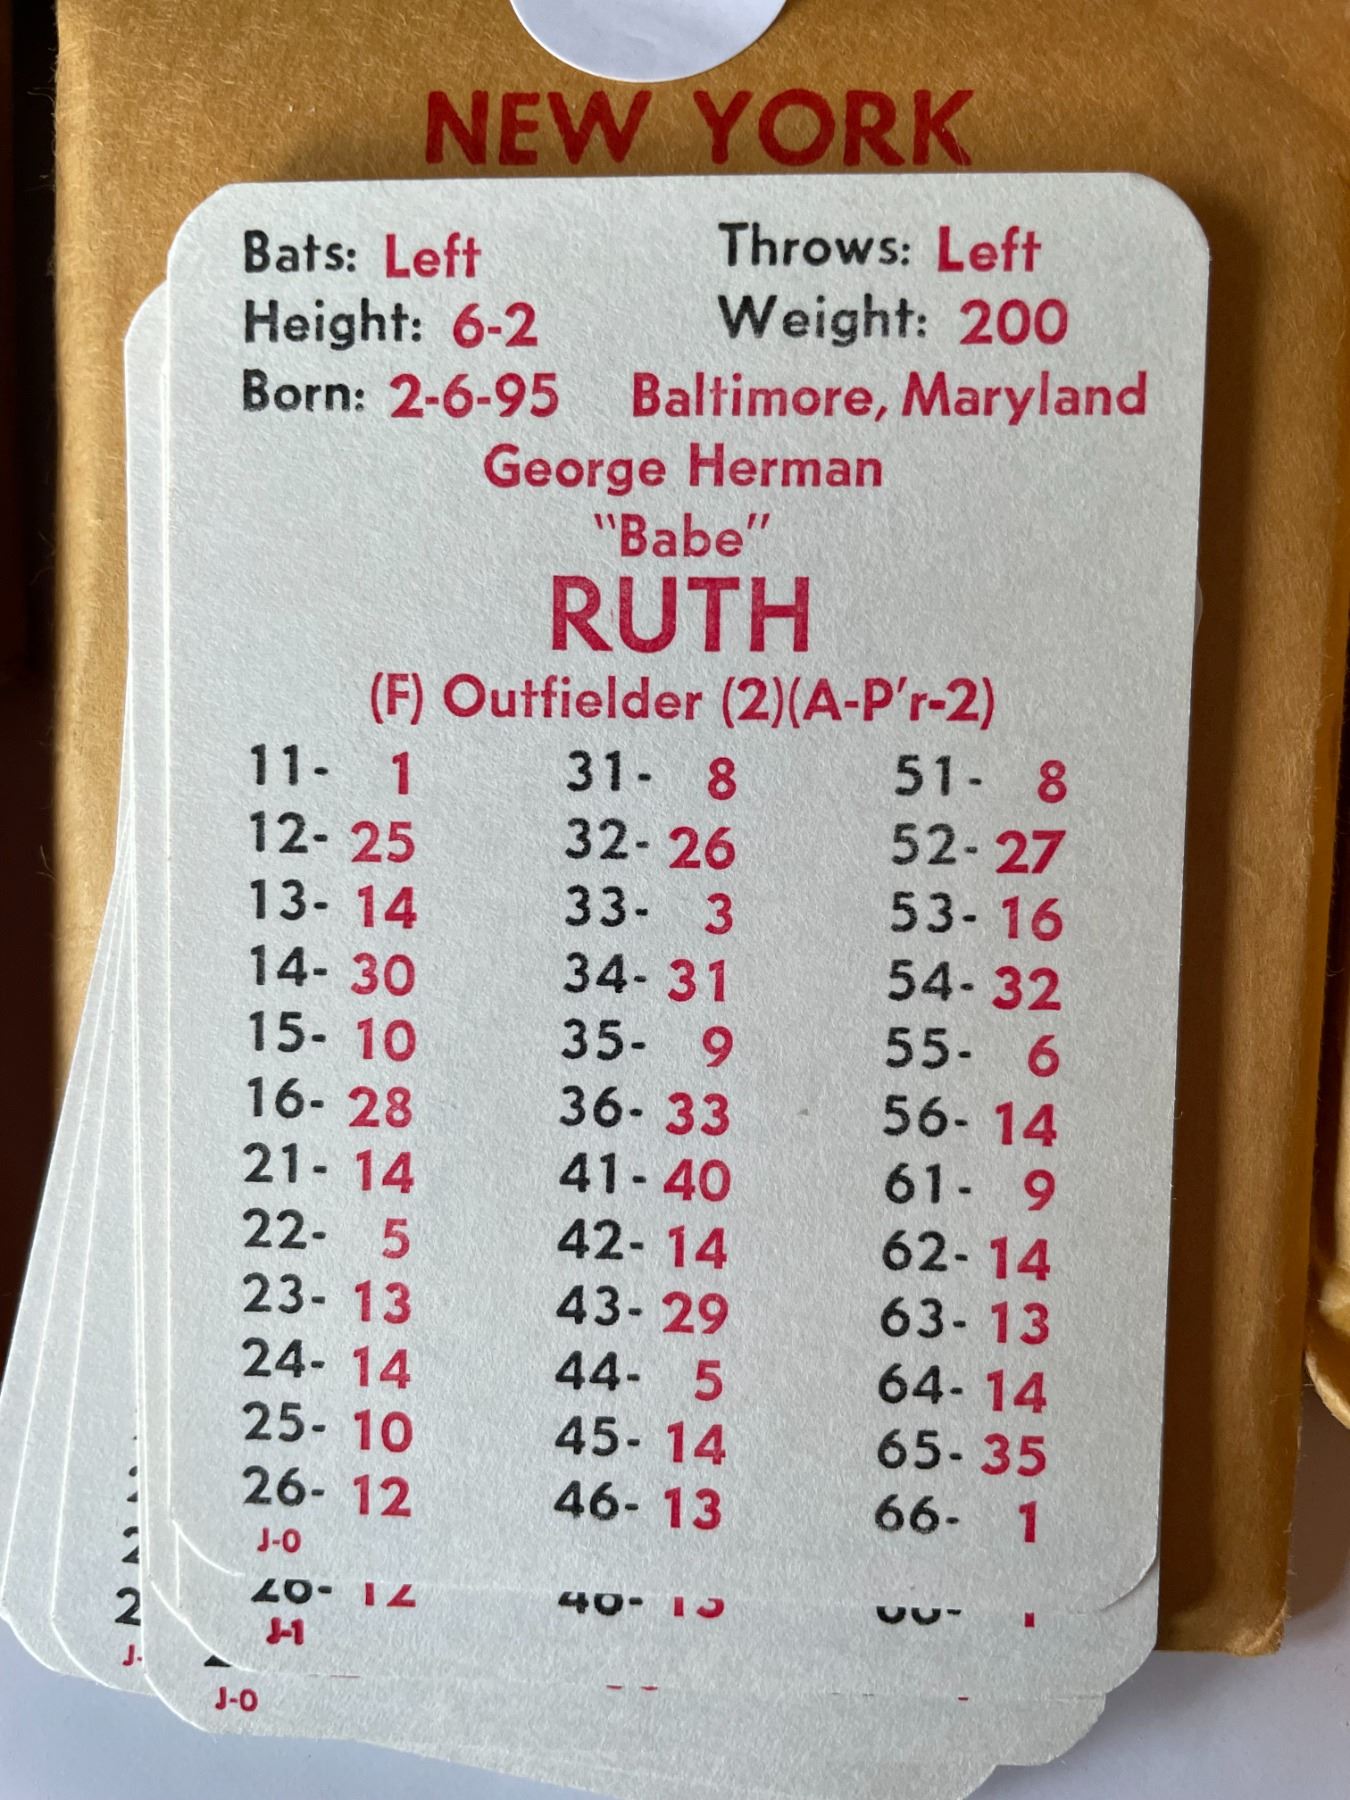 NEW YORK
Bats: Left Throws: Left
Height: 6-2 Weight: 200
Born: 2-6-95 Baltimore, Maryland
George Herman
"Babe"
RUTH
(F) Outfielder (2)(A-P'r-2)
11- 1 31- 8 51- 8
12- 25 32- 26 52- 27
13- 14 33- 3 53- 16
14- 30 34- 31 54- 32
15- 10 35- 9 55- 6
16- 28 36- 33 56- 14
21- 14 41- 40 61- 9
22- 5 42- 14 62- 14
23- 13 43- 29 63- 13
24- 14 44- 5 64- 14
25- 10 45- 14 65- 35
26- 12 46- 13 66- 1
J-0
J-1
J-0